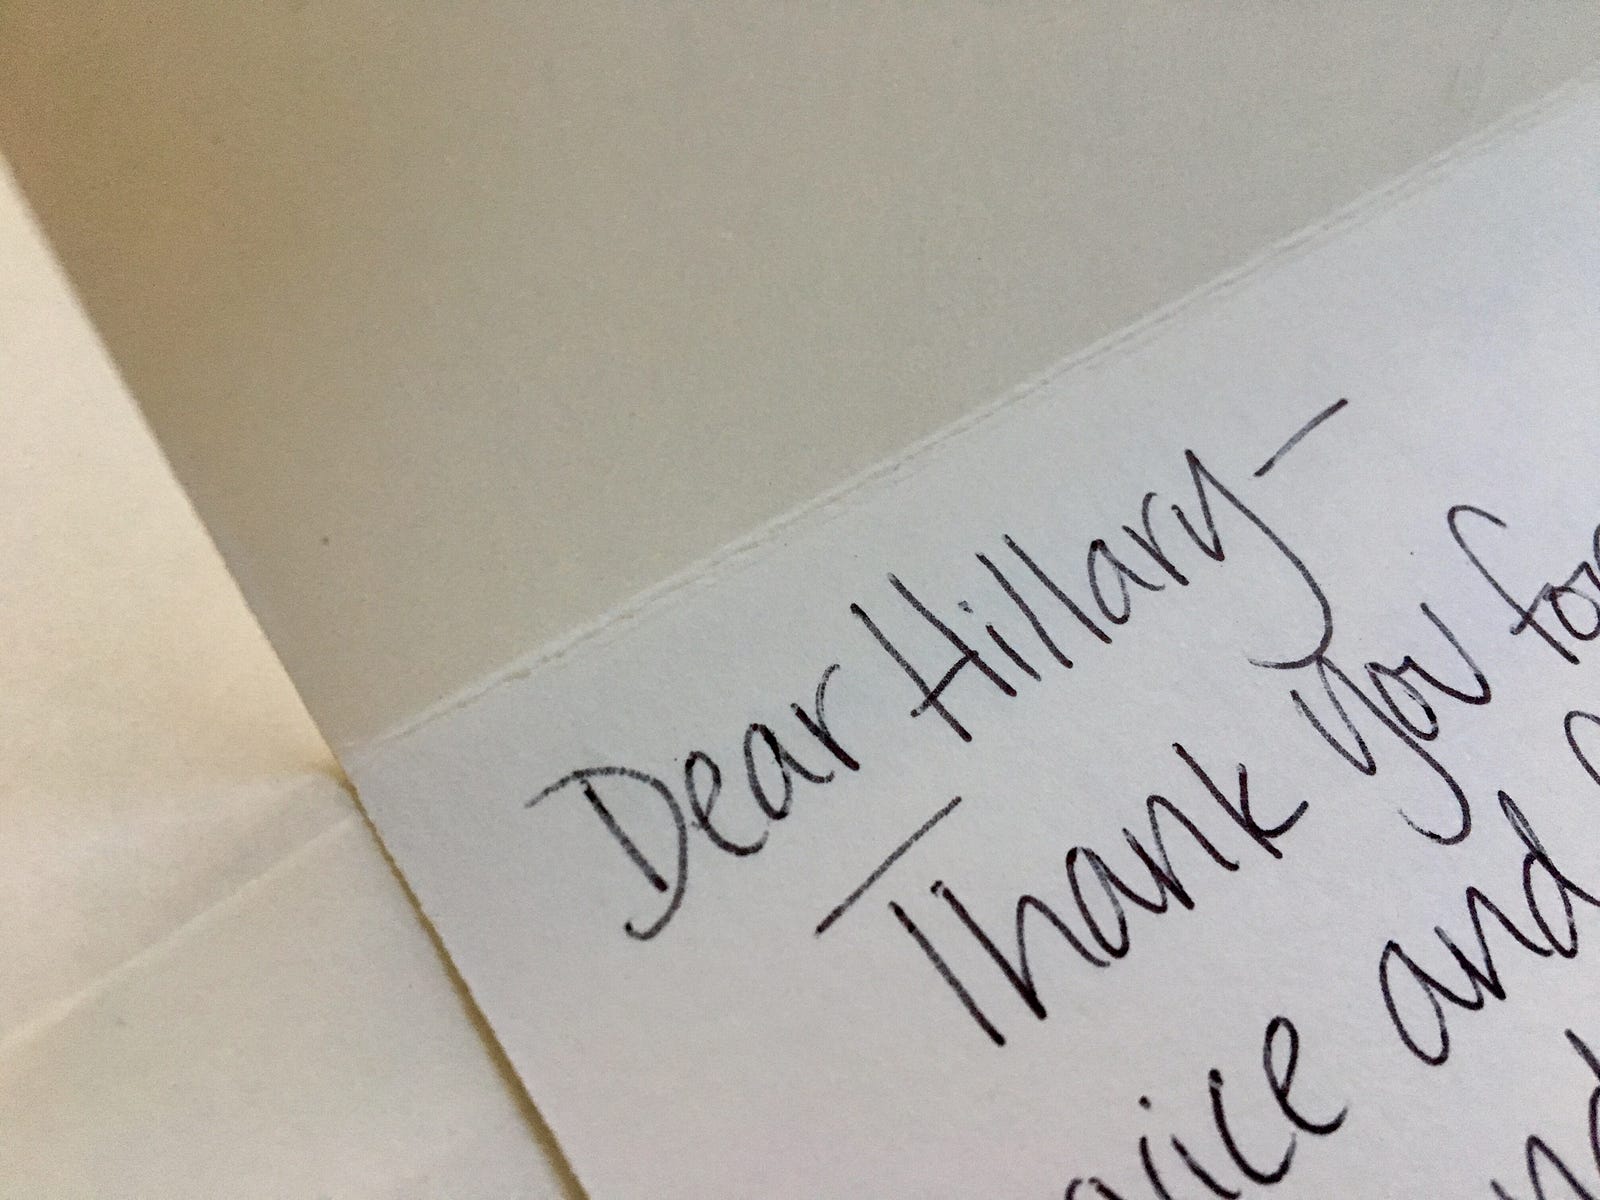 Dear Hillary-
Thank you for
and